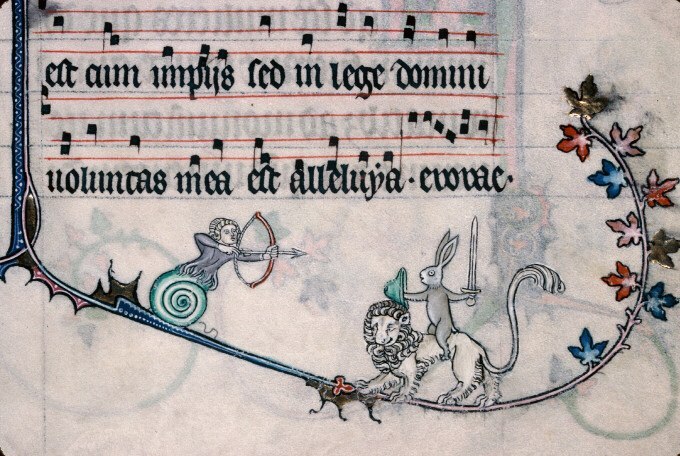 est cum impijs sed in lege domini
uoluntas mea est alleluya · evovae ·